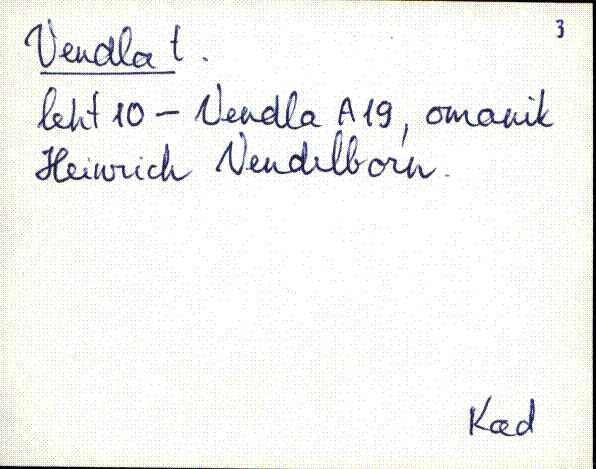 3
Vendla t.
leht 10 – Vendla A19, omanik
Heinrich Vendelborn.
Kad